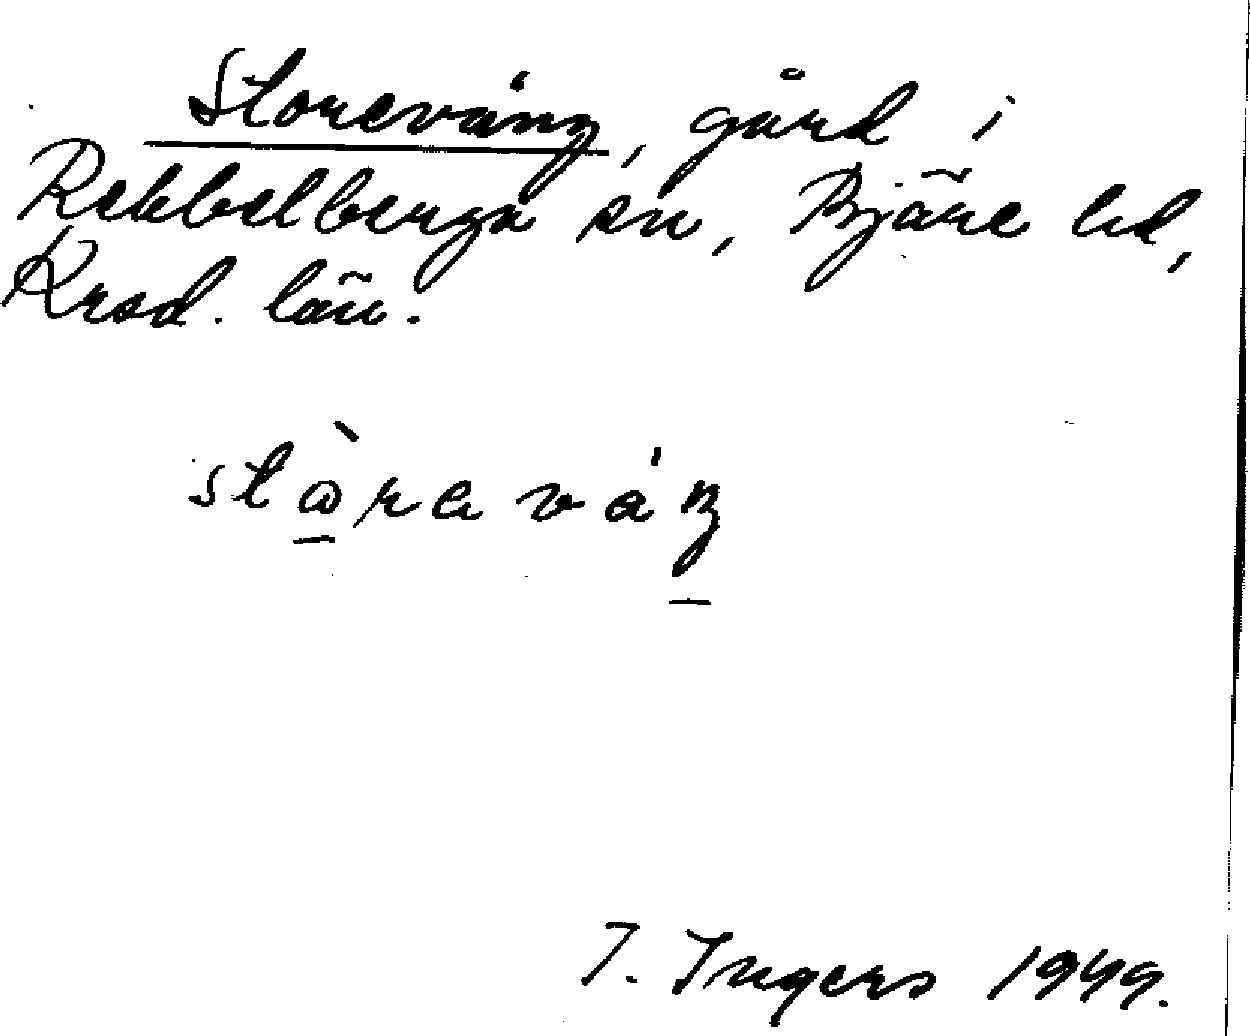 Storevång, gård i
Rebbelberga sn, Bjäre hd,
Krsd. län.
stὼ̱ra váŋ̱
I. Ingers 1949.